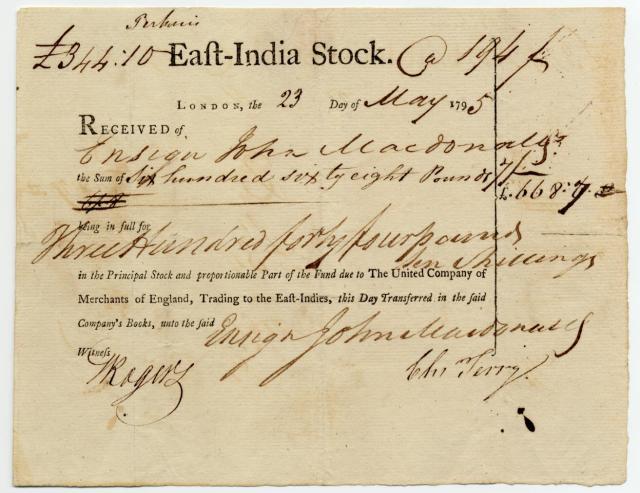 £344:10 East-India Stock. @ 194
LONDON, the 23 Day of May 1795
RECEIVED of
Ensign John Macdonald
the Sum of Six hundred sixty eight Pounds 7/
£.668:7.
being in full for
Three Hundred forty four pounds
ten Shillings
in the Principal Stock and proportionable Part of the Fund due to The United Company of
Merchants of England, Trading to the East-Indies, this Day Transferred in the said
Company's Books, unto the said Ensign John Macdonald
Witness
Rogers Chs Terry.